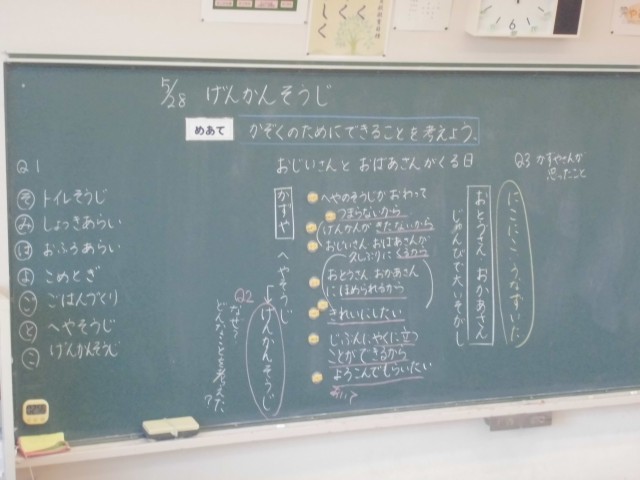 5/28 げんかんそうじ
めあて かぞくのためにできることを考えよう。
おじいさんと おばあさんがくる日
Q1
そ トイレそうじ
み しょっきあらい
は おふろあらい
よ こめとぎ
こ ごはんづくり
と へやそうじ
こ げんかんそうじ
かずや
へやそうじ
↓
げんかんそうじ
Q2
なぜ?
どんなことを考えた?
へやのそうじが おわって
つまらないから
げんかんが きたないから
おじいさん おばあさんが
久しぶりに くるから
おとうさん おかあさん
にほめられるから
きれいにしたい
じぶんにやくに立つ
ことができるから
よろこんでもらいたい
おとうさん・おかあさん
じゅんびで大いそがし
Q3 かずやさんが
思ったこと
にこにこ うなずいた